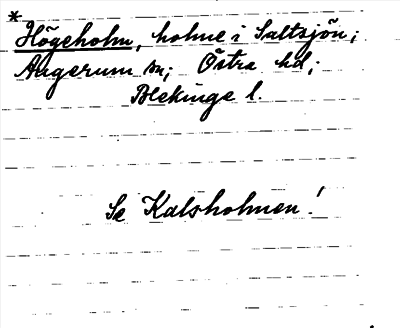 *
Högeholm, holme i Saltsjön;
Augerum sn; Östra hd;
Blekinge l.
Se Kalsholmen!